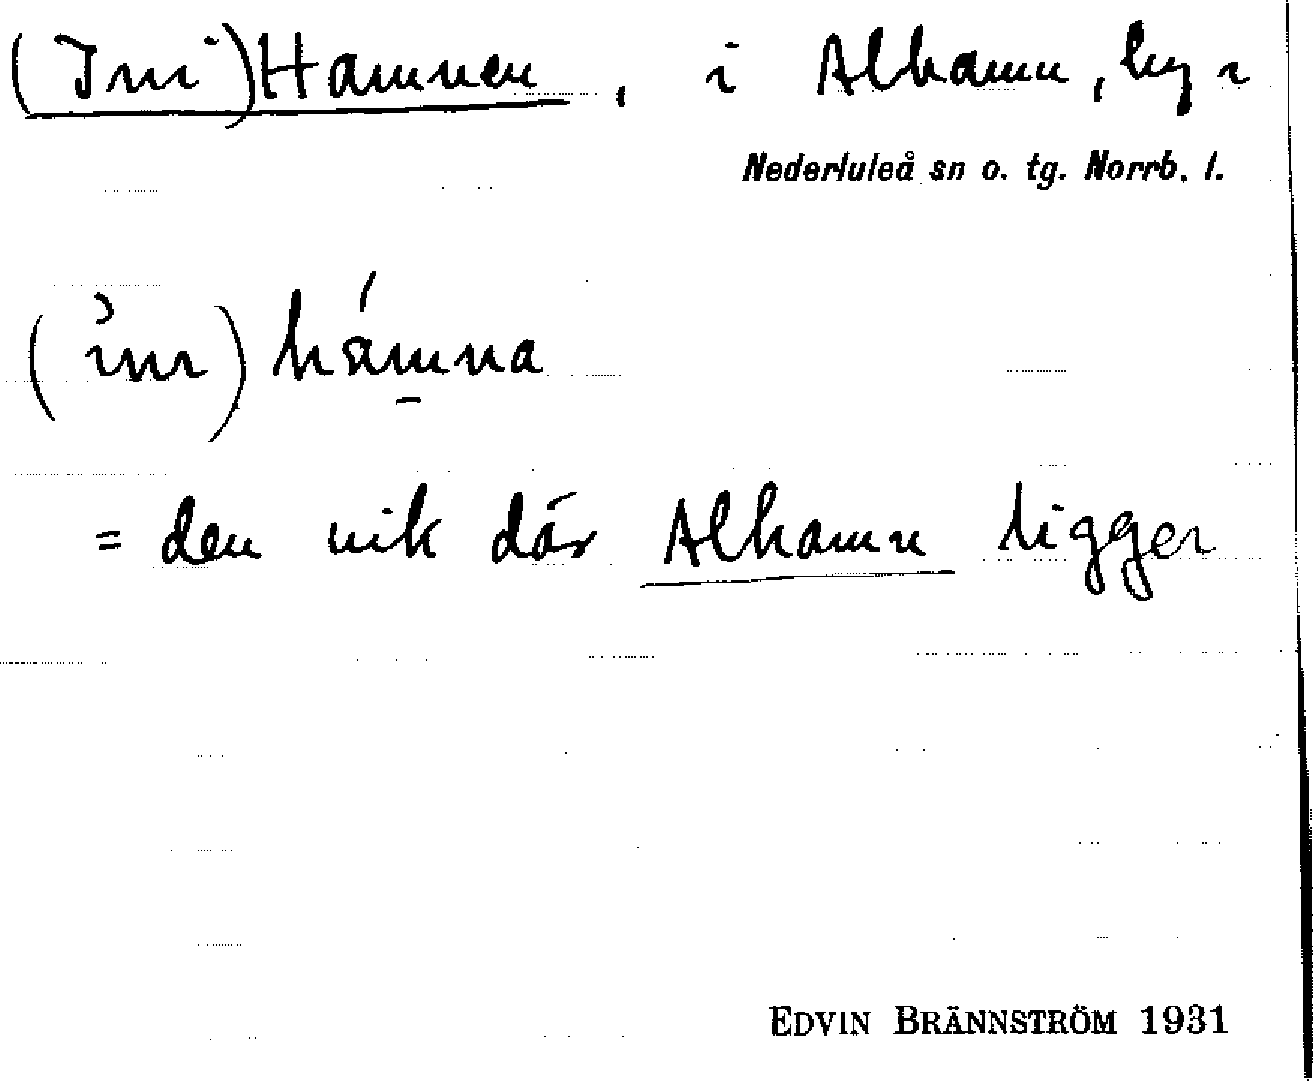 (Ini)Hamnen, i Alhamn, by i
Nederluleå sn o. tg. Norrb. l.
hámna
= den vik där Alhamn ligger
EDVIN BRÄNNSTRÖM 1931